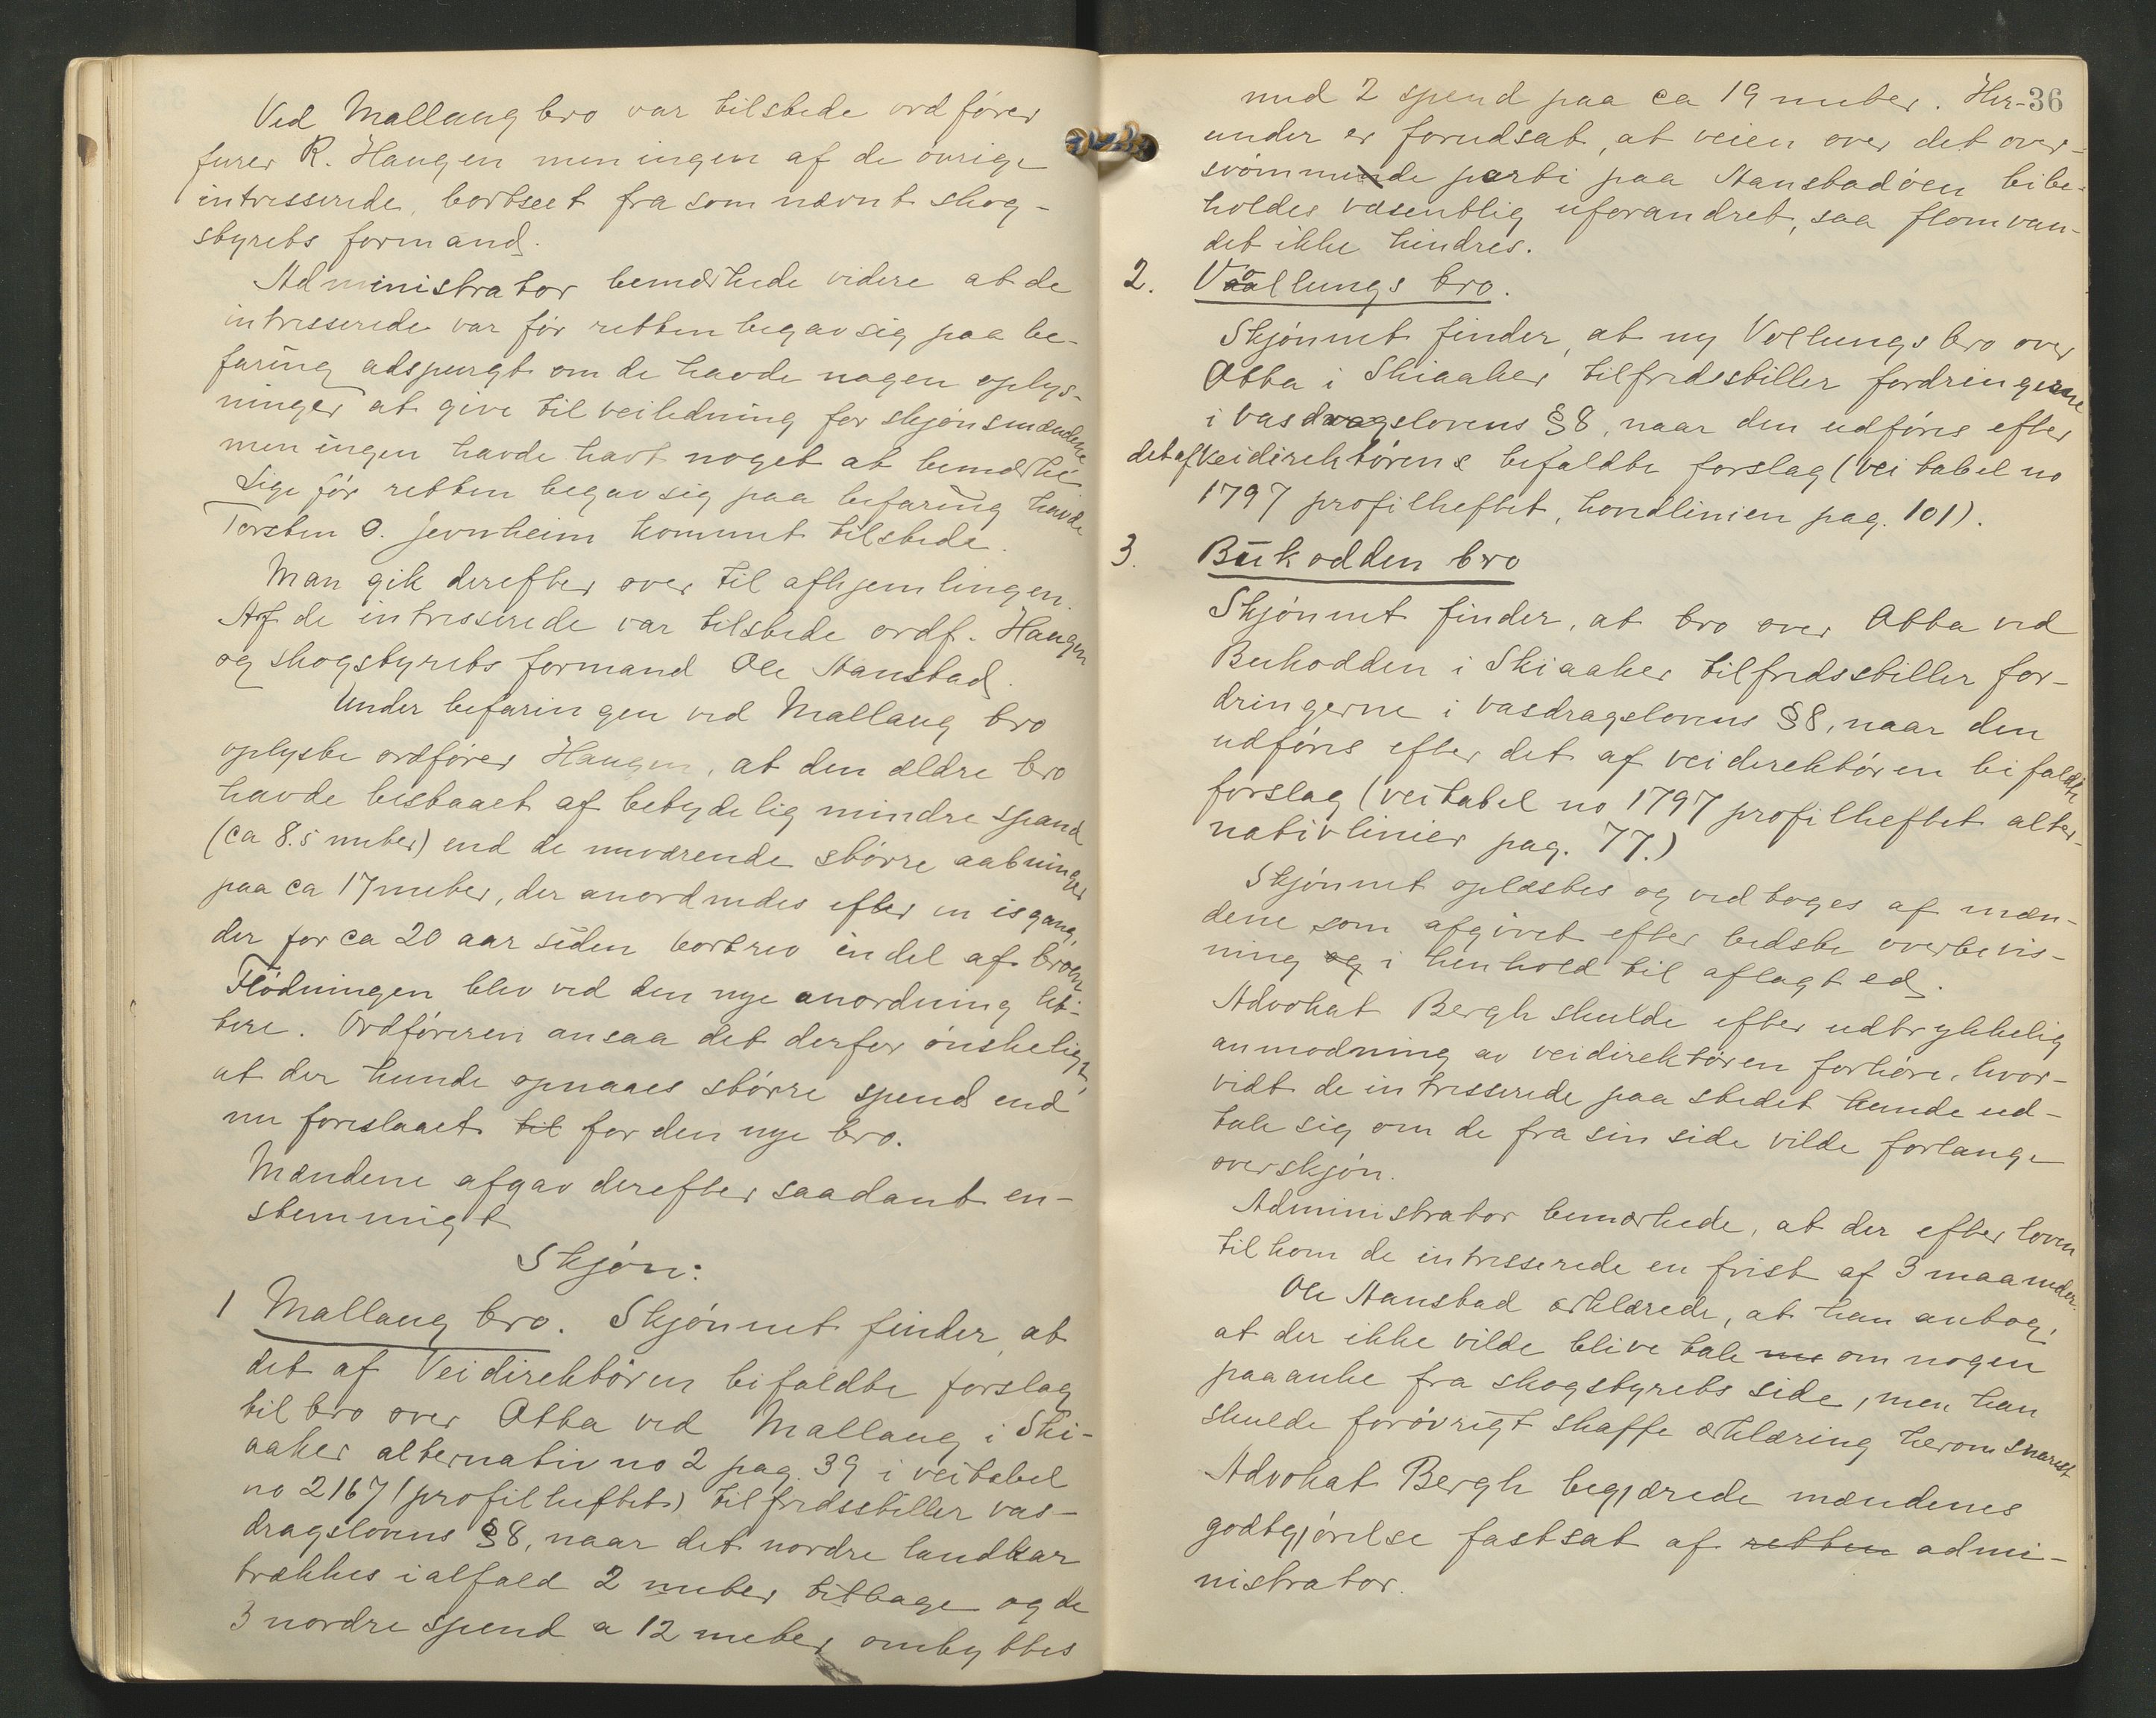 Ved Mallang bro var tilstede ordfører
furer R. Haugen men ingen af de øvrige
intresserede, bortseet fra som nævnt skog-
styrets formand.
Administrator bemærkede videre at de
intresserede var før retten begav sig paa be-
faring adspurgt om de havde nogen oplys-
ninger at give til veiledning for skjønsmændene
men ingen havde havt noget at bemærke
Lige før retten begav sig paa befaring havde
Torsten O. Jevnheim kommet tilstede.
Man gik derefter over til afhjemlingen.
Af de intresserede var tilstede ordf. Haugen
og skogstyrets formand Ole Stanstad.
Under befaringen ved Mallang bro
oplyste ordfører Haugen, at den ældre bro
havde bestaaet af betydelig mindre spand
(ca 8.5 meter) end de nuværende større aabninger
paa ca 17 meter, der anordnedes efter en isgang,
der for ca 20 aar siden bortrev en del af broen
Flødningen blev ved den nye anordning let-
tere. Ordføreren ansaa det derfor ønskeligt,
at der kunde opnaaes større spend end
nu foreslaaet til for den nye bro.
Mændene afgav derefter saadant en-
stemmigt
Skjøn:
1 Mallang bro. Skjønnet finder, at
det af Veidirektøren bifaldte forslag
til bro over Otta ved Mallang i Ski-
aaker alternativ no 2 pag. 39 i veitabel
no 2167 (profilheftet) tilfredsstiller vas-
dragslovens § 8, naar det nordre landkar
trækkes ialfald 2 meter tilbage og de
3 nordre spend a 12 meter ombyttes
med 2 spend paa ca 19 meter. Her- 36
under er forudsat, at veien over det over-
svømmende parti paa Stanstadøen bibe-
holdes væsentlig uforandret, saa flomvan-
det ikke hindres.
2. Vaallungs bro.
Skjønnet finder, at ny Vollungs bro over
Otta i Skiaaker tilfredsstiller fordringerne
i vasdragslovens § 8, naar den udføres efter
det af veidirektørens bifaldte forslag (vei tabel no
1797 profilheftet, hovedlinien pag. 101).
3. Bukodden bro
Skjønnet finder, at bro over Otta ved
Bukodden i Skiaaker tilfredsstiller for-
dringerne i vasdragslovens § 8, naar den
udføres efter det af veidirektøren bifaldte
forslag (veitabel no 1797 profilheftet alter-
nativlinier pag. 77.)
Skjønnet oplæstes og vedtoges af mæn-
dene som afgivet efter bedste overbevis-
ning og i henhold til aflagt ed.
Advokat Bergh skulde efter udtrykkelig
anmodning av veidirektøren forhøre, hvor-
vidt de intresserede paa stedet kunde ud-
tale sig om de fra sin side vilde forlange
overskjøn.
Administrator bemærkede, at der efter loven
tilkom de intresserede en frist af 3 maaneder.
Ole Stanstad erklærede, at han antog,
at der ikke vilde blive tale om nogen
paaanke fra skogstyrets side, men han
skulde forøvrigt skaffe erklæring herom snarest
Advokat Bergh begjærede mændenes
godtgjørelse fastsat af retten admi-
nistrator.